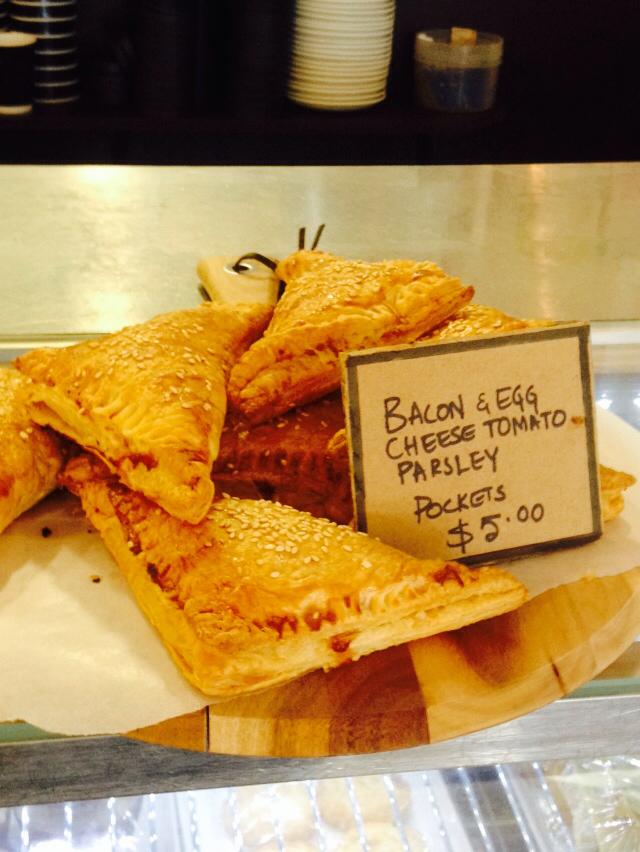 BACON & EGG
CHEESE TOMATO
PARSLEY
POCKETS
$5.00